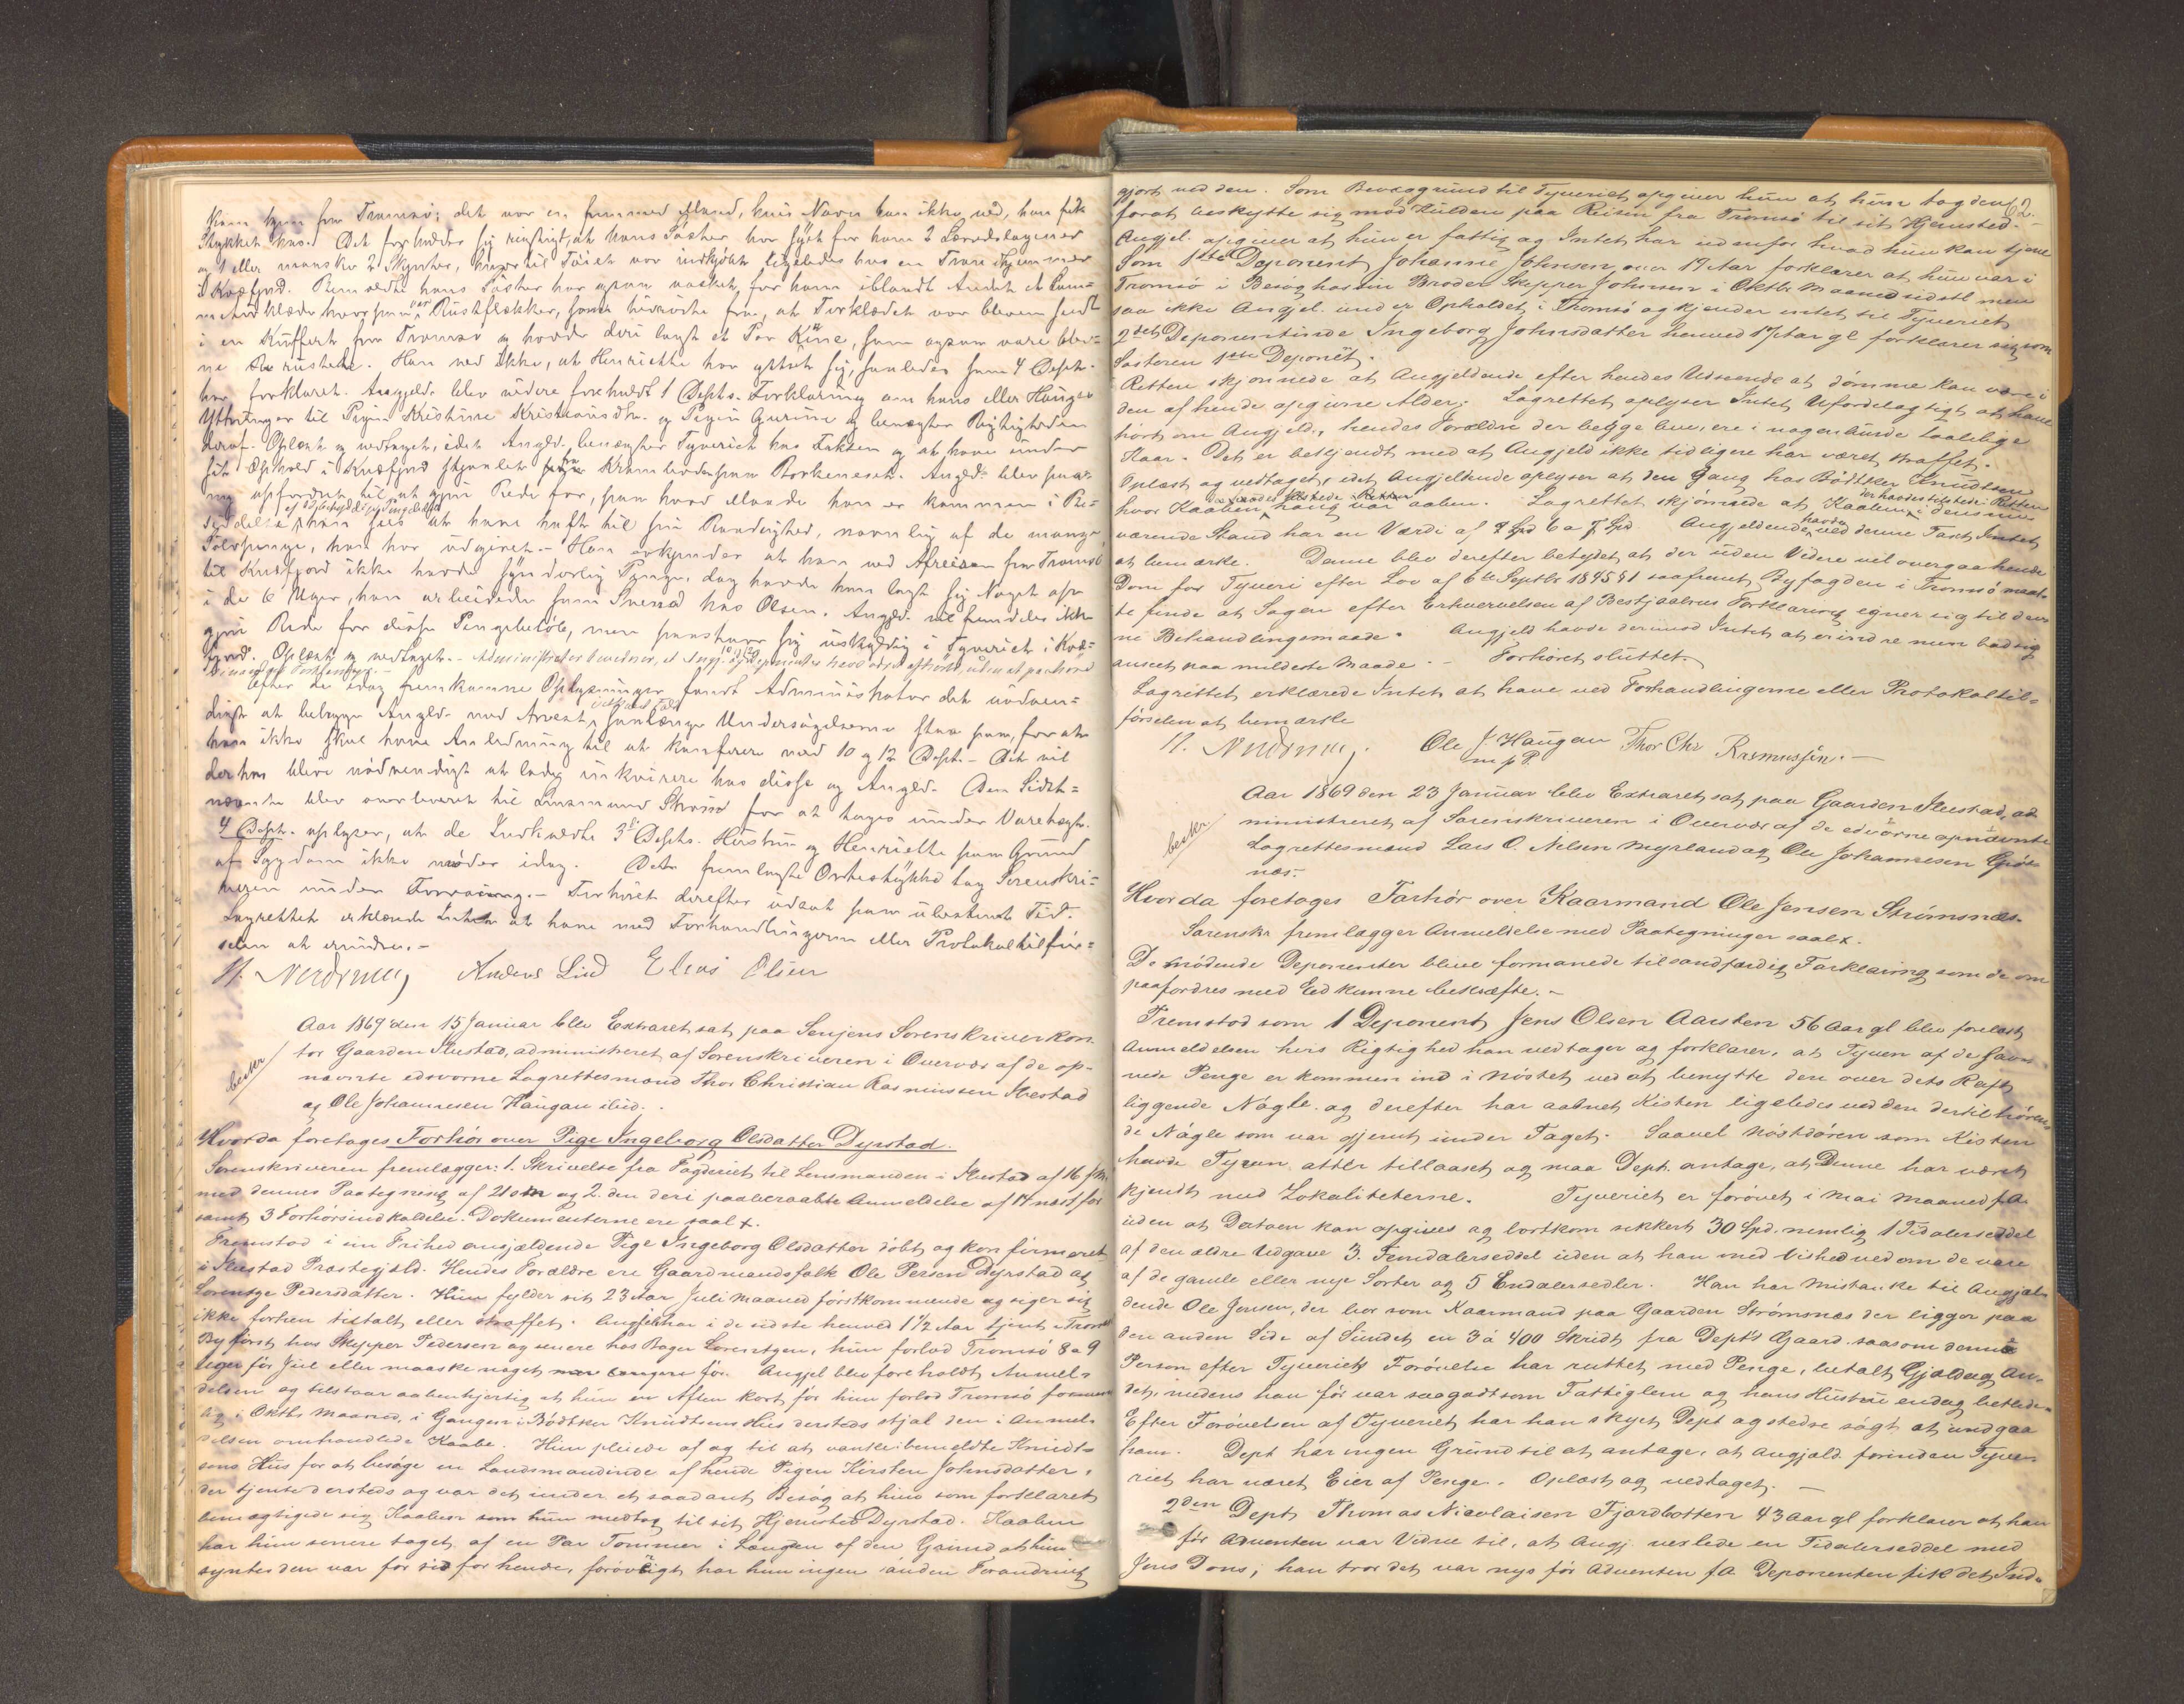 kom hjem fra Tromsø; det var en fremmed Mand, hvis Navn han ikke ved, han fik
Stykket hos. Det forholder sig rigtigt, at hans Søster har syet for ham 2 Lærredslagener
og 1 eller maaske 2 Skjorter, hvortil Tøiet var indkjøbt ligeledes hos en
i Kvæfjord. Bemeldte hans Søster har ogsaa vasket for ham iblandt Andet et
klæde hvorpaa var Rustflækker, som hidrørte fra, at Tørklædet var bleven sendt
i en Kuffert fra Tromsø og havde deri lagt et Par , som ogsaa vare blev-
ne rustede. Han ved ikke, at Henriette har yttret sig, saaledes som 4 Dept.
har forklaret. Angjeld. blev videre foreholdt 1 Depts. Forklaring om hans eller Hauges
Yttringer til Pigen Kristine Kristiansdtr. og Pigen Gurine og benægter Rigtigheden
deraf. Oplæst og vedtaget, idet Angjld. benægter Tyveriet hos og at have under
sit Ophold i Kvæfjord stjaalet fra Kramboden paa Borkenes. Angjd. blev paa
ny opfordret til at gjøre Rede for, paa hvad Maade han er kommen i Be-
siddelse af det betydelige Pengebeløb, han sees at have havt til sin Raadighed, navnlig af de mange
Sølvpenge, han har udgivet. – Han erkjender at han ved Afreisen fra Tromsø
til Kvæfjord ikke havde synderlig Penge, dog havde han lagt sig Noget op
i de 6 Uger, han arbeidede som Svend hos Olsen. Angjd. vil fremdeles ikke
gjøre Rede for disse Pengebeløb, men paastaar sig uskyldig i Tyveriet i Kvæ-
fjord. Oplæst og vedtaget. – Administrator bemærker, at Angj. og Deponenter hver afhørt, uden at paahøre
hinandens Forklaring. –
Efter de idag fremkomne Oplysninger fandt Administrator det nødven-
digt at belægge Angjld. med Arrest, saalænge Undersøgelserne staa paa, for at
han ikke skal have Anledning til at konferere med 10 og 12 Dept. – Det vil
derhos blive nødvendigt at lade inkvirere hos disse og Angjld. Den Sidst-
nævnte blev overleveret til Lensmand Strøm for at tages under Varetægt.
4 Dept. oplyser, at de Indkaldte 3d Depts. Hustru og Henriette paa Grund
af Sygdom ikke møder idag. Det fremlagte Ørkestykke tog Sorenskri-
veren under Forvaring. – Forhøret derefter udsat paa ubestemt Tid.
Lagrettet erklærede Intet at have ved Forhandlingerne eller Protokoltilfør-
selen at erindre. –
N. Nerdrum Anders Lind Elias Olsen
Aar 1869 den 15 Januar blev Extraret sat paa Senjens Sorenskriverkon-
tor Gaarden Ibestad, administreret af Sorenskriveren i Overvær af de op-
nævnte edsvorne Lagrettesmænd Thor Christian Rasmussen Ibestad
og Ole Johannesen Haugan ibid.
besker
Hvorda foretages Forhør over Pige Ingeborg Olsdatter Dyrstad.
Sorenskriveren fremlægger: 1. Skrivelse fra Fogderiet til Lensmanden i Ibestad af 16 f. M.
med dennes Paategning af 21 s. M. og 2. den deri paaberaabte Anmeldelse af 14 næstfør
samt 3 Forhørsindkaldelse. Dokumenterne ere saal. +.
Fremstod i sin Frihed angjældende Pige Ingeborg Olsdatter døbt og konfirmeret
i Ibestad Præstegjæld. Hendes Forældre ere Gaardmandsfolk Ole Persen Dyrstad og
Lorentse Pedersdatter. Hun fylder sit 23 Aar Juli Maaned førstkommende og siger sig
ikke forhen tiltalt eller straffet. Angjel. har i de sidste henved 1½ Aar tjent i Tromsø
By først hos Skipper Pedersen og senere hos Bager Lorentzen, hun forlod Tromsø 8 a 9
Uger før Jul eller maaske noget længere før. Angjel. blev foreholdt Anmel-
delsen og tilstaar aabenhjertig at hun en Aften kort før hun forlod Tromsø
i Oktbr Maaned, i Gangen i Bødtker Knudtsens Hus dersteds stjal den i Anmel-
delsen omhandlede Kaabe. Hun pleiede af og til at vanke i bemeldte Knudt-
sens Hus for at besøge en Landsmandinde af hende Pigen Kirsten Johnsdatter,
der tjente dersteds og var det under et saadant Besøg at hun som forklaret
bemægtigede sig Kaaben som hun medtog til sit Hjemsted Dyrstad. Kaaben
har hun senere taget af en Par Tommer i Længden af den Grund at hun
syntes den var for sid for hende, forøvrigt har hun ingen anden Forandring
62.
gjort ved den. Som Bevæggrund til Tyveriet opgiver hun at hun tog den
forat beskytte sig mod Kulden paa Reisen fra Tromsø til sit Hjemsted. –
Angjel. opgiver at hun er fattig og Intet har udenfor hvad hun kan tjene
Som 1ste Deponent Johanne Johnsen over 17 Aar forklarer at hun var i
Tromsø i Besøg hos sin Broder Skipper Johnsen i Oktbr Maaned sidstl. men
saa ikke Angjel. under Opholdet i Tromsø og kjender intet til Tyveriet.
2det Deponentinde Ingeborg Johnsdatter henved 17 Aar gl. forklarer sig som
Søsteren 1ste Deponent.
Retten skjønnede at Angjeldende efter hendes Udseende at dømme kan være i
den af hende opgivne Alder. Lagrettet oplyser Intet Ufordelagtigt at have
hørt om Angjeld., hendes Forældre der begge leve, ere i nogenlunde taalelige
Kaar. Det er bekjendt med at Angjeld ikke tidligere har været straffet.
Oplæst og vedtaget, idet Angjeldende oplyser at den Gang hos Bødtker Knudtsen
hvor Kaaben hang var aaben. Lagrettet skjønnede at Kaaben, der havdes tilstede i Retten i dens nu
værende Stand har en Værdi af 6 a 7 Spd. Angjeldende havde ved denne Taxt Intet
at bemærke. Denne blev derefter betydet at der uden Videre vil overgaa hende
Dom for Tyveri efter Lov af 6te Septbr 1845 § 1 saafremt Byfogden i Tromsø maat-
te finde at Sagen efter Erhvervelsen af Bestjaalnes Forklaring egner sig til den-
ne Behandlingsmaade. Angjeld havde derimod Intet at erindre men bad sig
anseet paa mildeste Maade. – Forhøret sluttet.
Lagrettet erklærede Intet at have ved Forhandlingerne eller Protokoltil-
førselen at bemærke
N. Nerdrum. Ole J. Haugan Thor Chr Rasmussen. –
m p P.
Aar 1869 den 23 Januar blev Extraret sat paa Gaarden Ibestad, ad-
ministreret af Sorenskriveren i Overvær af de edsvorne opnævnte
Lagrettesmænd Lars O. Nilsen Myrland og Ole Johannesen Grøt-
næs.
besker
Hvorda foretages Forhør over Kaarmand Ole Jensen Strømsnæs.
Sorenskr. fremlægger Anmeldelse med Paategninger saal. +.
De mødende Deponenter bleve formanede til sandfærdig Forklaring som de om
paafordres med Eed kunne bekræfte. –
Fremstod som 1 Deponent Jens Olsen Aarsten 56 Aar gl. blev forelæst
Anmeldelsen hvis Rigtighed han vedtager og forklarer, at Tyven af de savn-
ede Penge er kommen ind i Nøstet ved at benytte den over dets Raft
liggende Nøgle og derefter har aabnet Kisten ligeledes ved den dertil høren-
de Nøgle som var gjemt under Taget. Saavel Nøstdøren som Kisten
havde Tyven atter tillaaset og maa Dept. antage, at Denne har været
kjendt med Lokaliteterne. Tyveriet er forøvet i Mai Maaned f. A.
uden at Datoen kan opgives og bortkom sikkert 30 Spd. nemlig 1 Tidalerseddel
af den ældre Udgave 3. Femdalerseddel uden at han med Vished ved om de vare
af de gamle eller nye Sorter og 5 Endalersedler. Han har Mistanke til Angjæl-
dende Ole Jensen, der bor som Kaarmand paa Gaarden Strømsnæs der ligger paa
den anden Side af Sundet en 3 à 400 Skridt fra Depts Gaard saasom denne
Person efter Tyveriets Forøvelse har ruttet med Penge, betalt Gjæld og An-
det, medens han før var saagodtsom Fattiglem og hans Hustru endog betlede.
Efter Forøvelsen af Tyveriet har han skyet Dept og stedse søgt at undgaa
ham. Dept har ingen Grund til at antage, at Angjæld. forinden Tyve-
riet har været Eier af Penge. Oplæst og vedtaget. –
2den Dept Thomas Nicolaisen Fjordbotten 43 Aar gl. forklarer at han
før Adventen var Vidne til, at Angj. vexlede en Tidalerseddel med
Jens Dons; han tror det var nys før Adventen f. A. Deponenten fik det Ind-